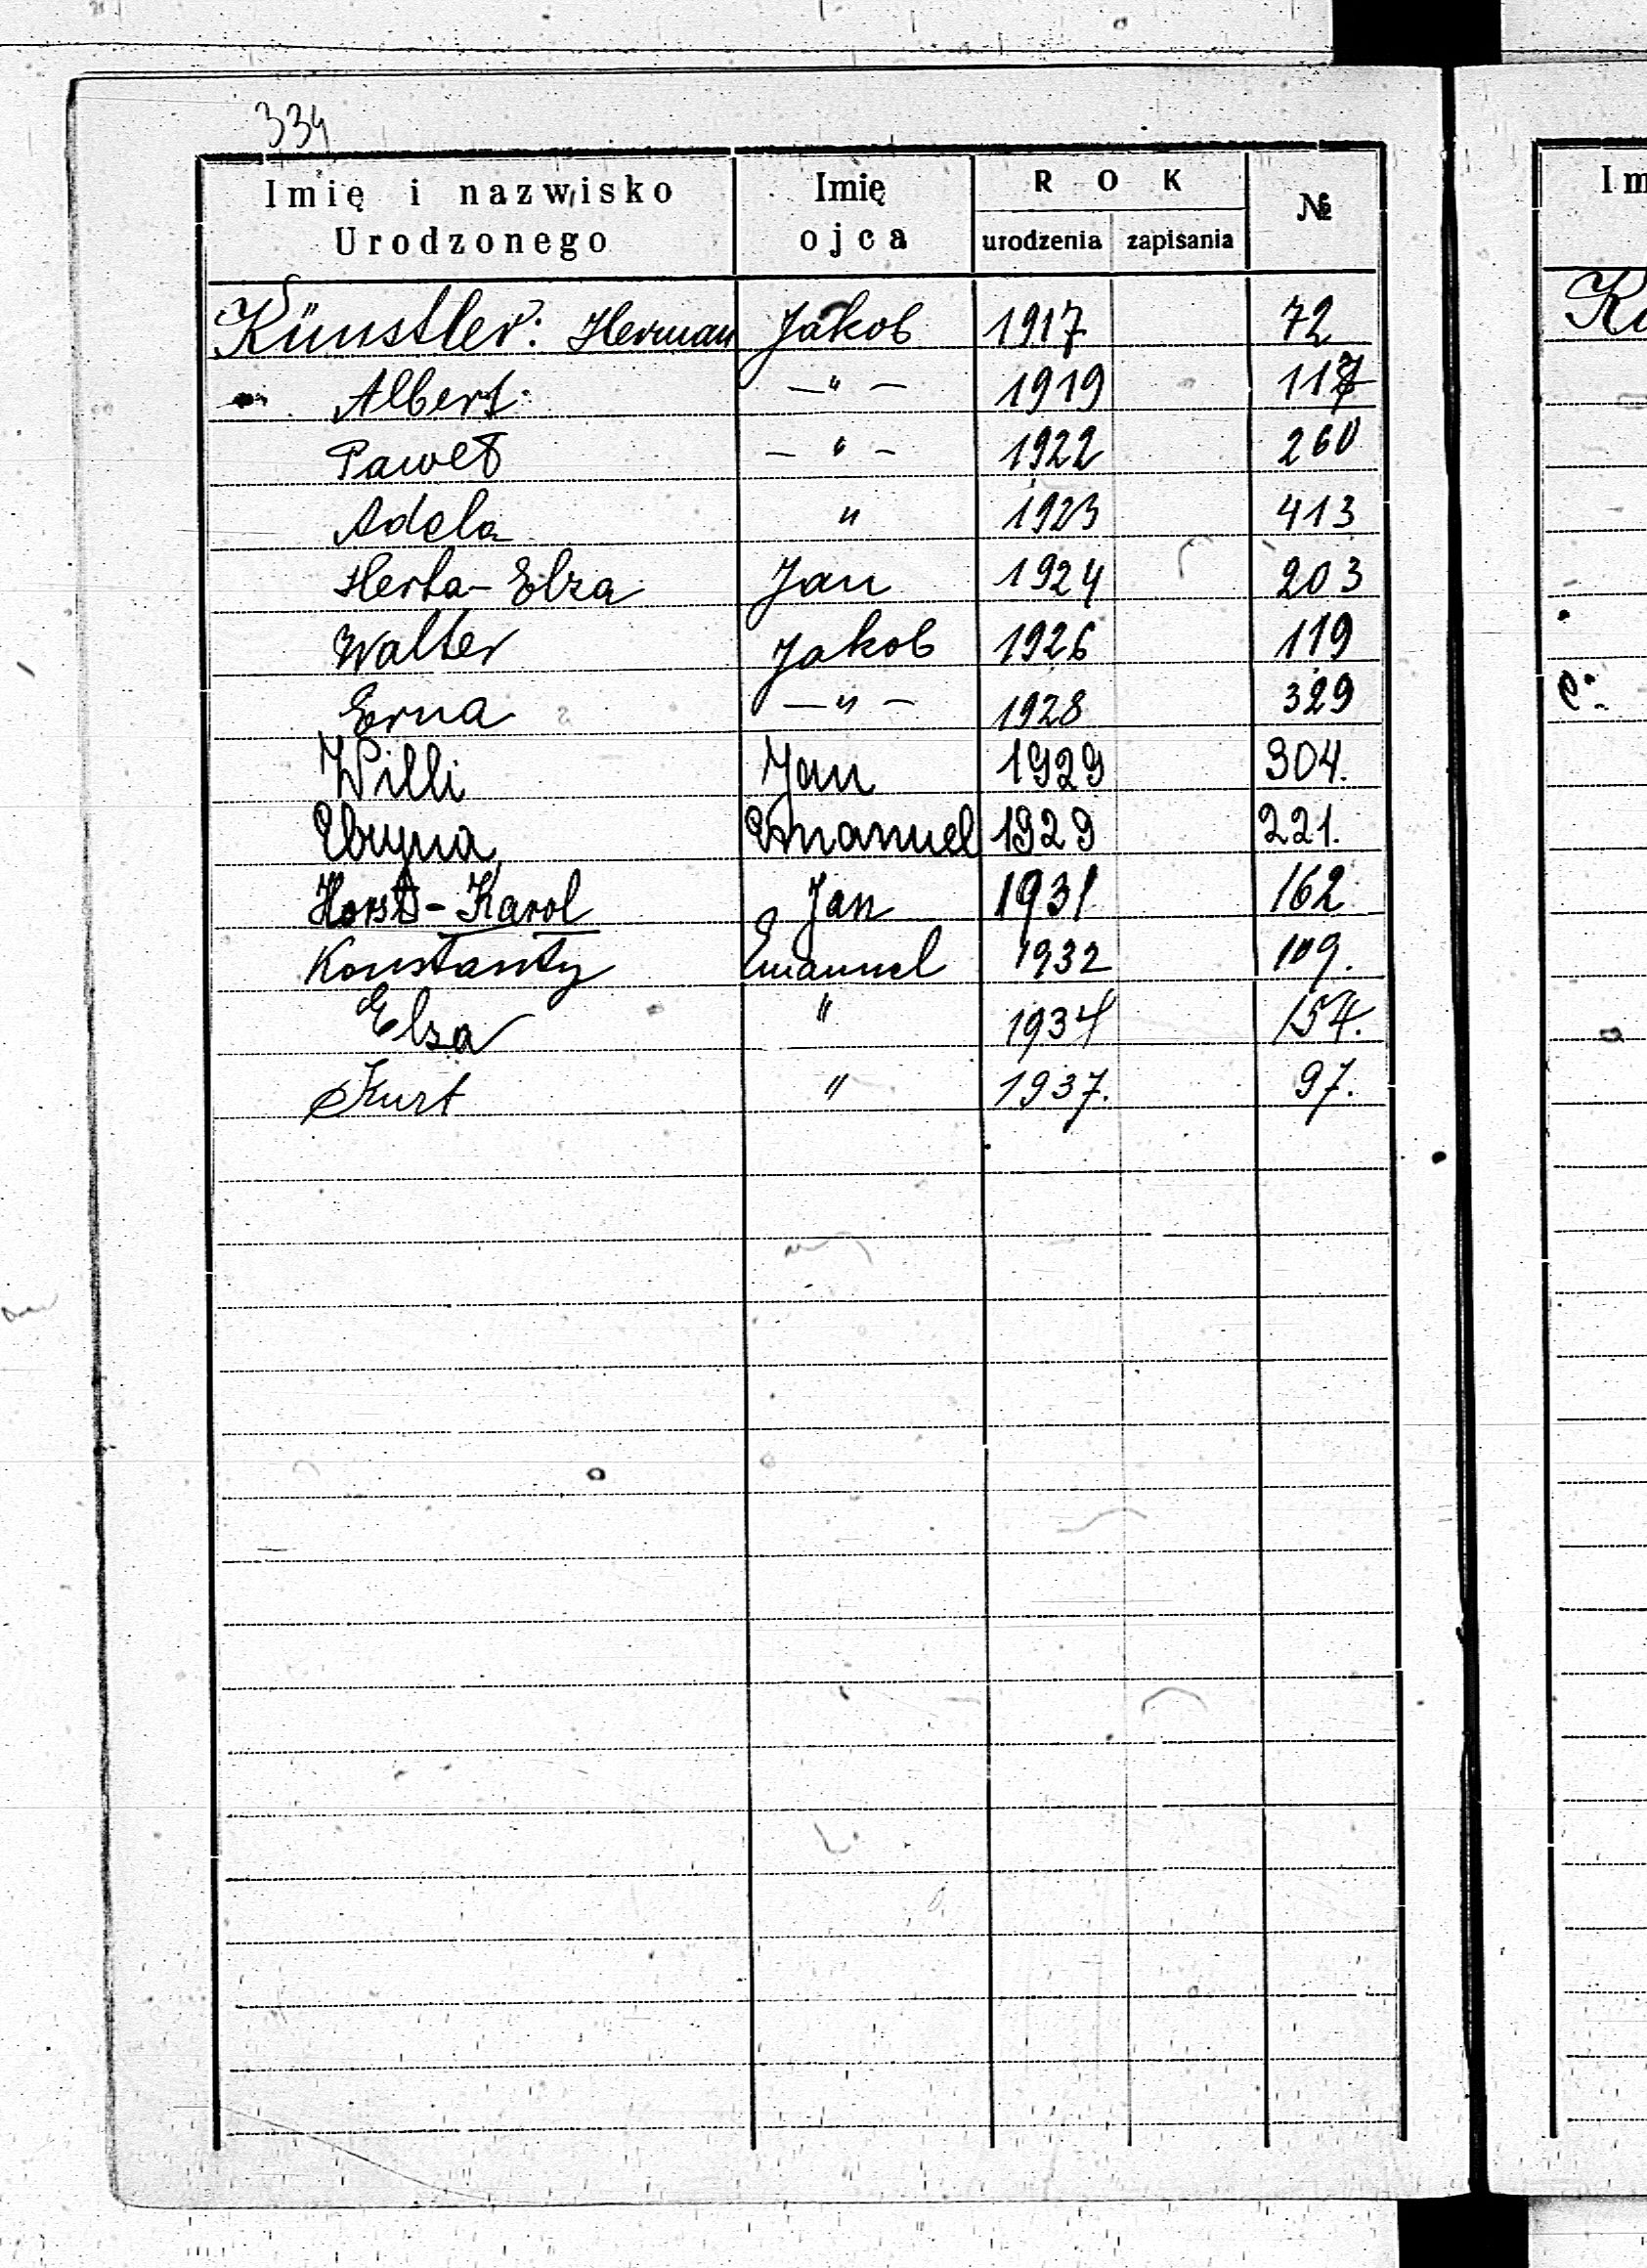 334
Imię i nazwisko Urodzonego Imię ojca ROK urodzenia zapisania №
Künstler: Herman Jakob 1917 72
Albert —"— 1919
Paweł —"— 1922 260
Adela " 1923 413
Herta-Elza Jan 1924 203
Walter Jakob 1926 119
Erna —"— 1928 329
Willi Jan 1929 304.
Emanuel 1929 221.
Horst-Karol Jan 1931 162
Konstanty Emanuel 1932 109.
Elza " 1934 154.
Kurt " 1937. 97.